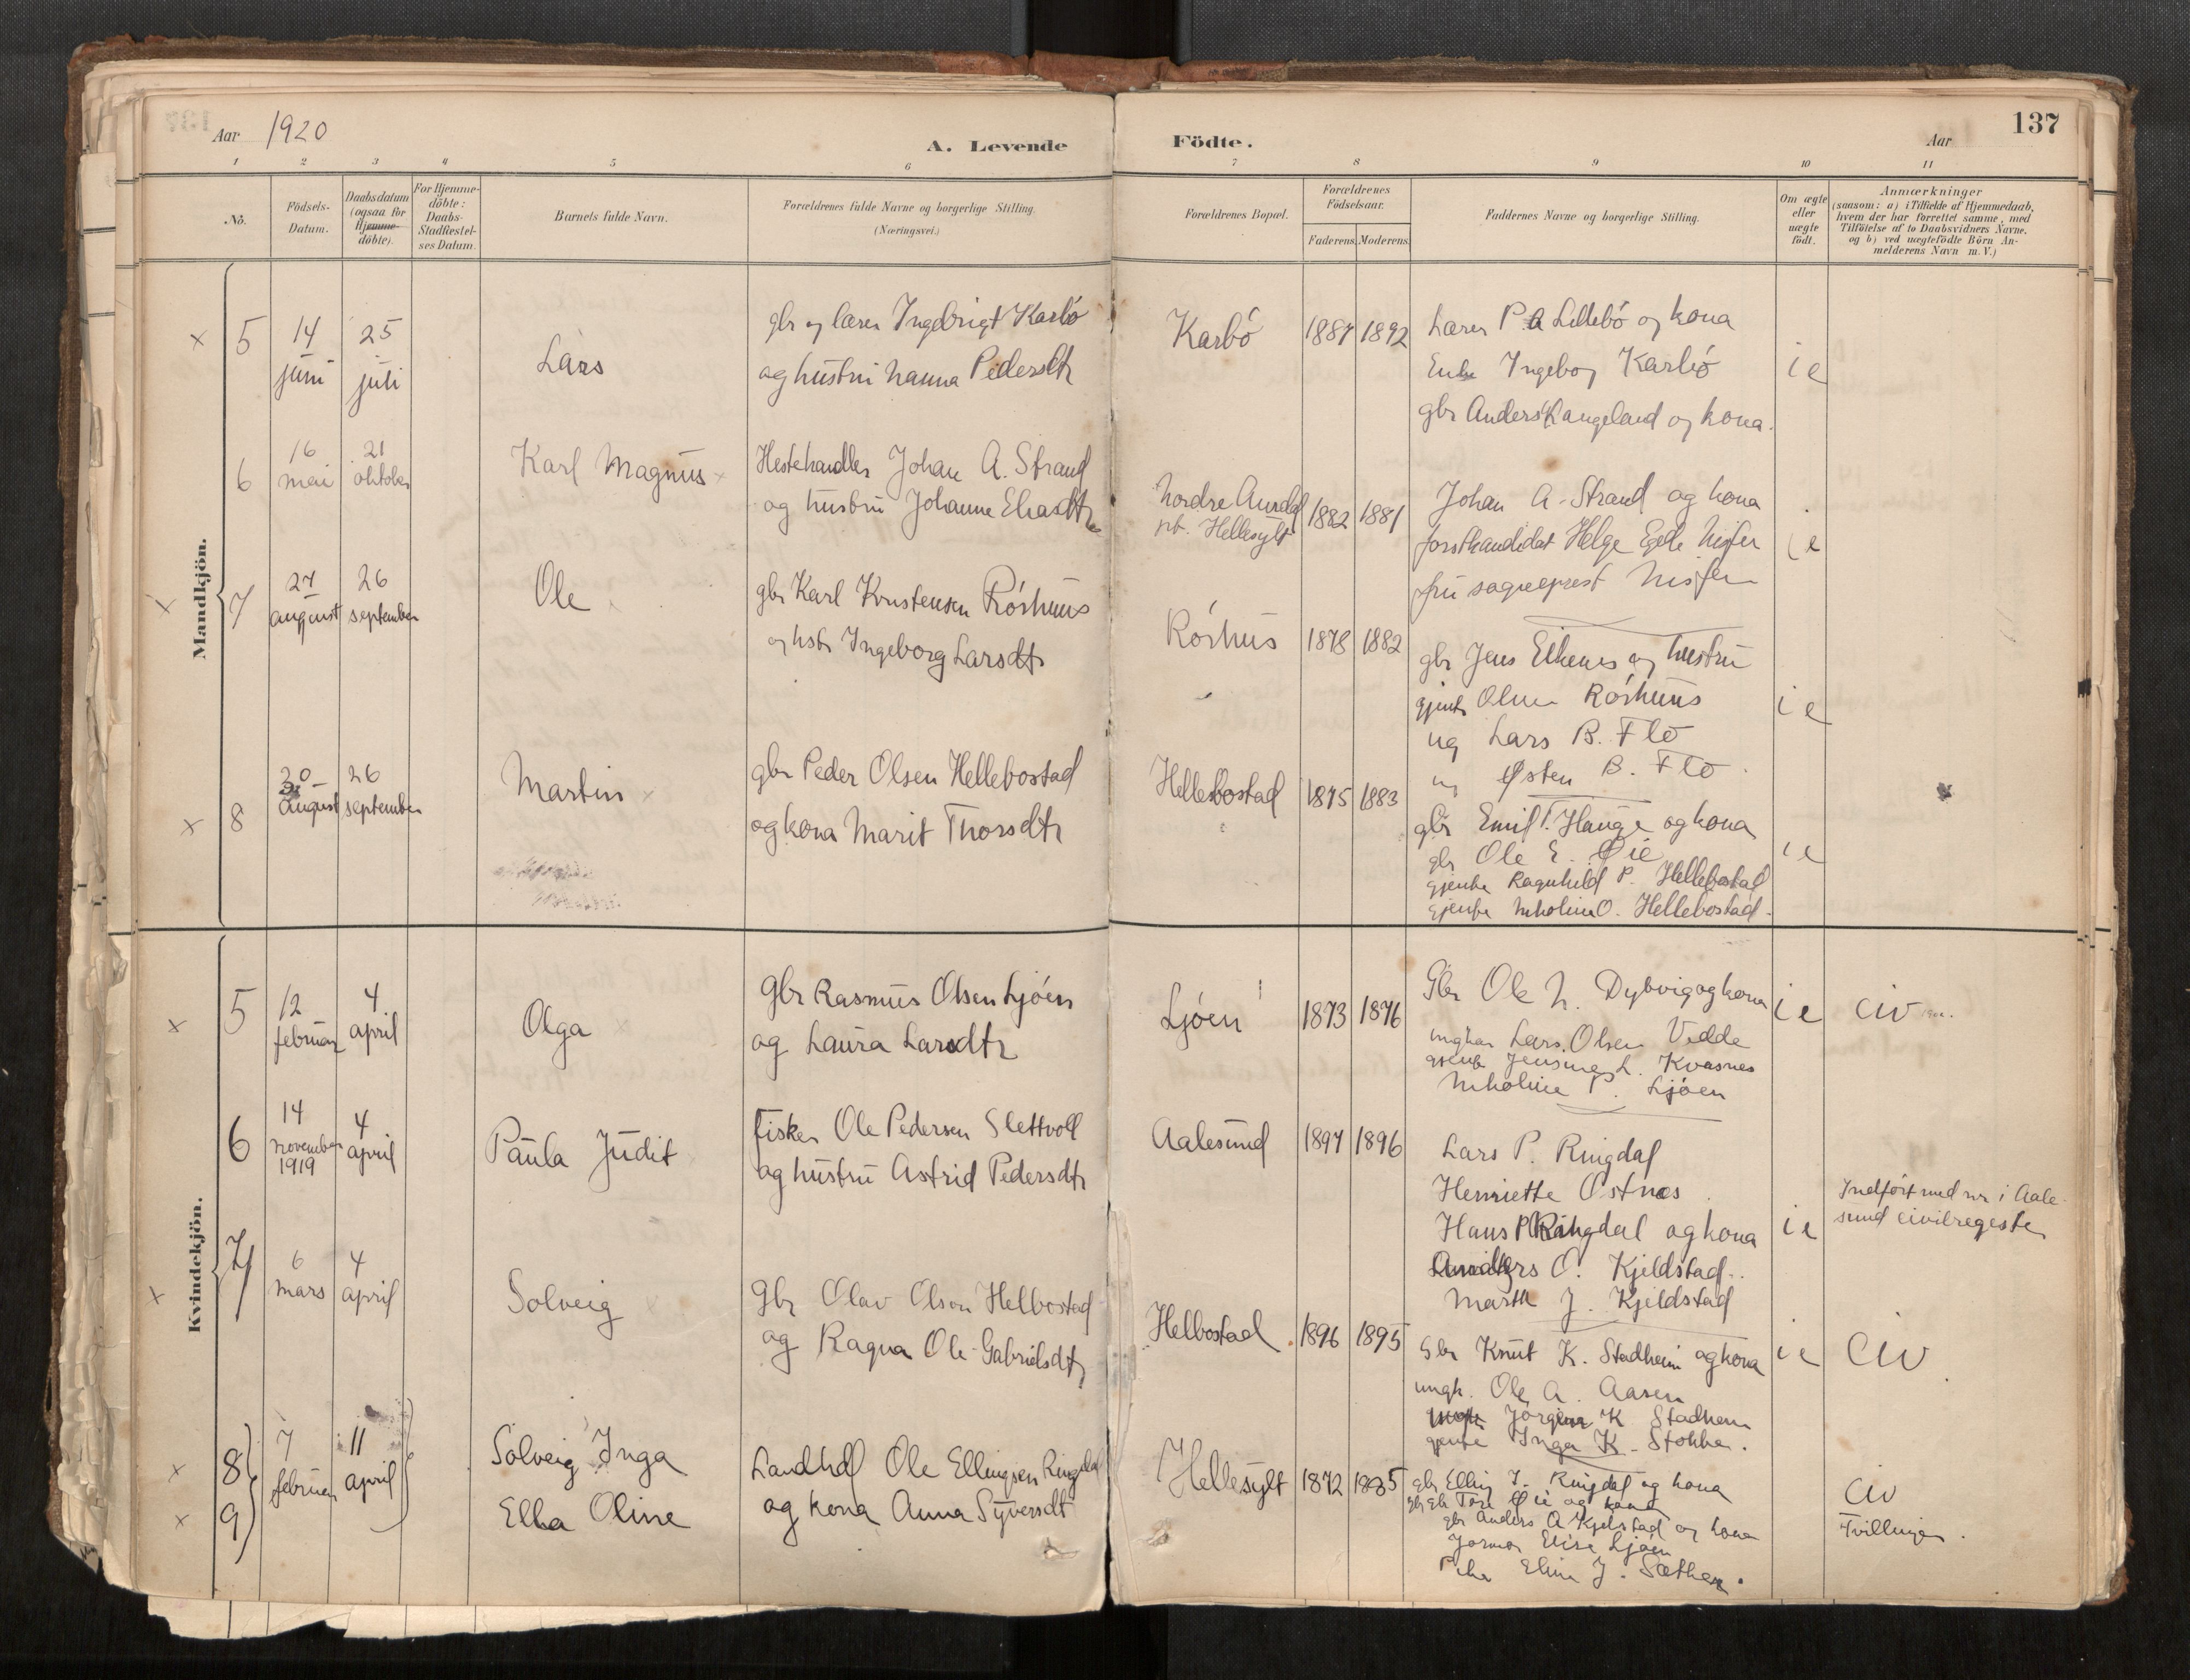 137
Aar 1920
A. Levende Födte.
Aar
1 2 3 4 5 6 7 8 9 10 11
No.
Födsels-Datum.
Daabsdatum (ogsaa for Hjemme-döbte).
For Hjemme-döbte: Daabs-Stadfæstel-ses Datum.
Barnets fulde Navn.
Forældrenes fulde Navne og borgerlige Stilling.
(Næringsvei.)
Forældrenes Bopæl.
Forældrenes Födselsaar.
Faderens. Moderens.
Faddernes Navne og borgerlige Stilling.
Om ægte eller uægte födt.
Anmærkninger
(saasom: a) i Tilfælde af Hjemmedaab,
hvem der har forrettet samme, med
Tilföielse af to Daabsvidners Navne.
og b) ved uægtefödte Börn An-
melderens Navn m. V.)
Mandkjön.
× 5
14 juni
25 juli
Lars
gbr og lærer Ingebrigt Karbö
og hustru Nanna Pedersdtr
Karbö
1887 1892
Lærer P A Lillebö og kona
Enke Ingeborg Karbö
gbr Anders Langeland og kona.
i e
6
16 mai
21 oktober
Karl Magnus ×
Hestehandler Johan A. Strand
og hustru Johanne Eliasdtr
Nordre Aurdal
pt. Hellesylt
1882 1881
Johan A. Strand og kona
forstkandidat Helge Egede Nissen
fru sogneprest Nissen
i e
× 7
27 august
26 september
Ole ×
gbr Karl Kristensen Rörhuus
og hstr Ingeborg Larsdtr
Rörhus
1878 1882
gbr Jens Eikenes og hustru
gjente Oline Rörhuus
ug Lars B. Flo
ug Østen B. Flo
i e
× 8
30 august
26 september
Martin ×
gbr Peder Olsen Hellebostad
og kona Marit Thorsdtr
Hellebostad
1875 1883
gbr Emil T. Hauge og kona
gbr Ole E. Øie
gjente Ragnhild P. Hellebostad
gjente Nikoline O. Hellebostad.
i e
Kvindekjön.
× 5
12 februar
4 april
Olga
Gbr Rasmus Olsen Ljöen
og Laura Larsdtr
Ljöen
1873 1876
Gbr Ole N. Dybvig og kona
ungkar Lars Olsen Vedde
gjente Jensine L. Kvasnes
Nikoline P. Ljöen
i e
civ
6
14 november 1919
4 april
Paula Judit
Fisker Ole Pedersen Slettvoll
og hustru Astrid Pedersdtr
Aalesund
1897 1896
Lars P. Ringdal
Henriette Ostnes
Hans P. Ringdal og kona
Anders O. Kjeldstad.
Marta J. Kjeldstad
i e
Indfört med nr i Aale-
sund civilregeste
× 7
6 mars
4 april
Solveig ×
Gbr Olav Olson Helbostad
og Ragna Ole-Gabrielsdtr
Helbostad
1896 1895
Gbr Knut K. Stadheim og kona
ungk. Ole A. Aasen
Jörgine K Stadheim
gjente Inga K. Stokke.
i e
civ
× 8
× 9
7 februar
11 april
Solveig Inga
Ella Oline
Landhdl Ole Ellingsen Ringdal
og kona Anna Syversdt
Hellesylt
1872 1885
gbr Elling I. Ringdal og kona
gbr Tore Øie og kona
gbr Anders A Kjelstad og kona
Jormor Elise Ljöen
Pike Elina J. Sæther.
civ
Tvillinger.